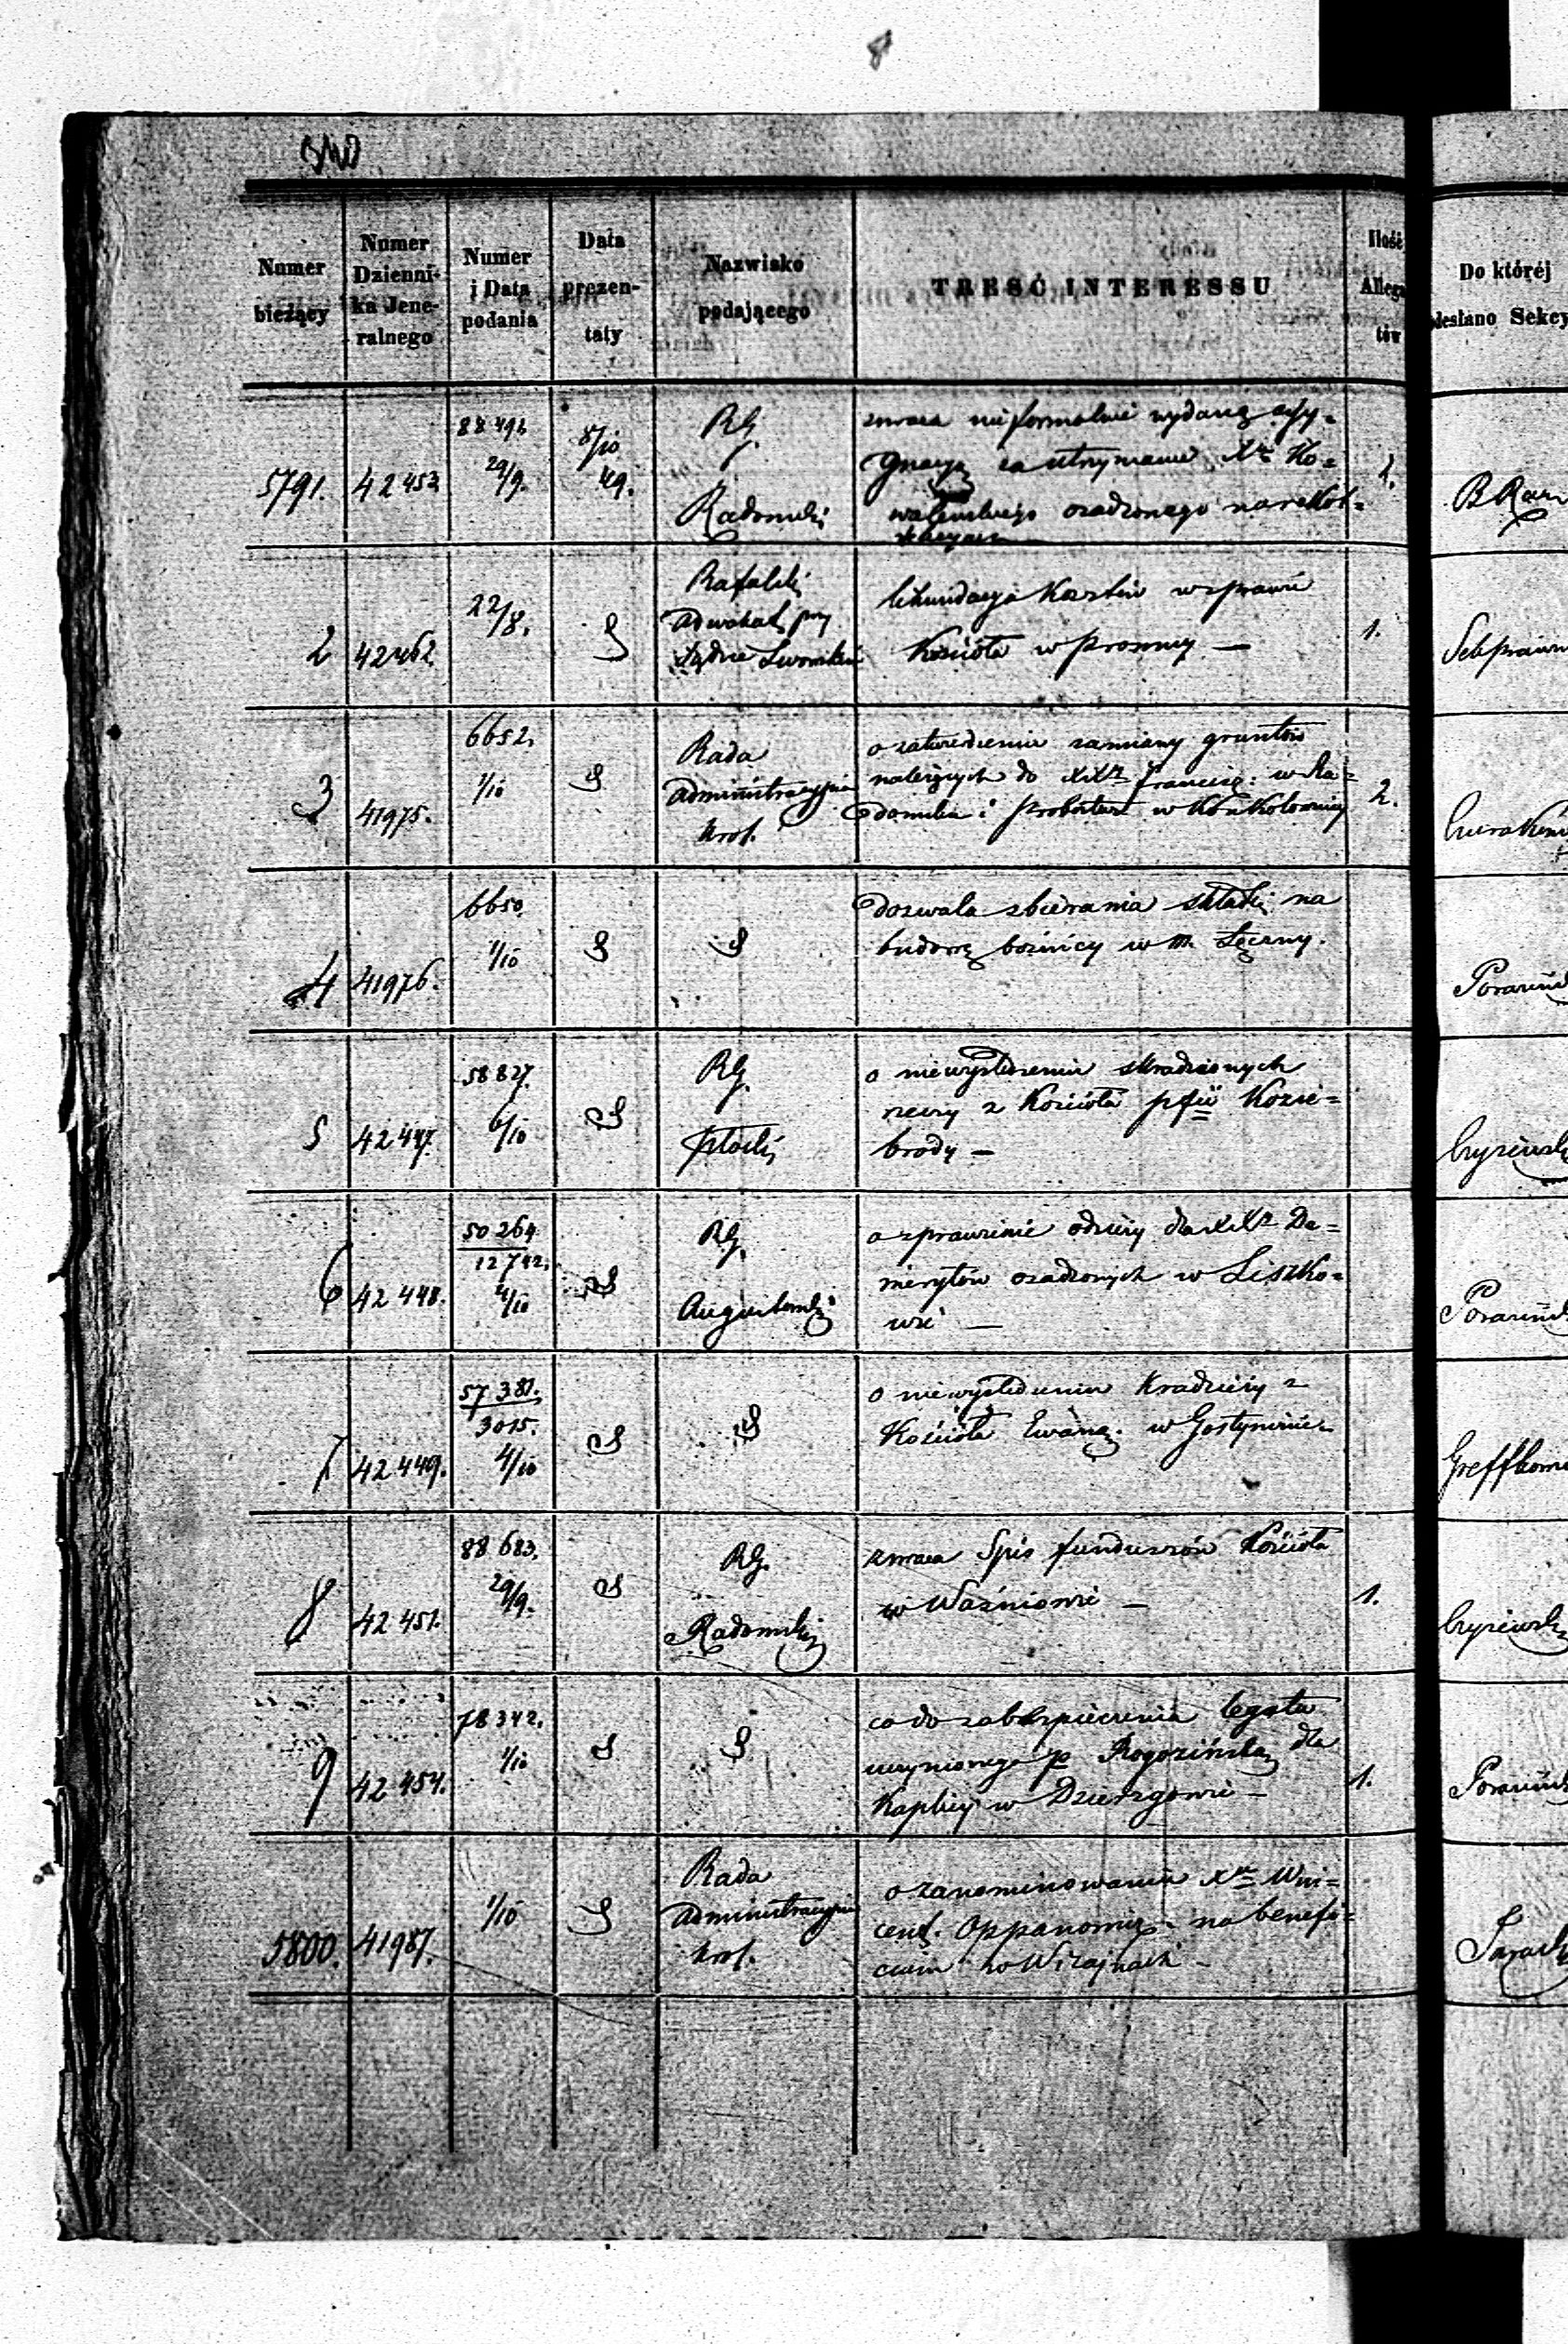 Numer bieżący | Numer Dzienni- ka Jene- ralnego | Numer i Data podania | Data prezen- taty | Nazwisko podającego | TREŚĆ INTERESSU | Ilość Allega tów | Do któréj odesłano Sekcy
5791. | 42453 | 88 491. 29/9. | 8/10 49. | RG. Radomski | zwraca nieformalnie wydaną assy=
gnacyą za utrzymanie Xa Ko=
walewskiego osadzonego na rekol=
lekcyach | 1.
2 | 42462. | 22/8. | S | Rafalski
Adwokat przy
Sądzie | likwidacya Kosztów w sprawie
Kościoła w Promny — | 1.
3 | 41975. | 6652. 1/10 | S | Rada
Administracyjna
Król. | o zatwierdzenie zamiany gruntów
należących do XXzy Francisz: w Ra=
domsku i Probostwa w | 2.
4 | 41976. | 6650. 1/10 | S | S | dozwala zbierania składki na
budowę bożnicy w m. Łęczny.
5 | 42447. | 58 827. 6/10 | S | RG.
Płocki | o niewyśledzeniu skradzionych
rzeczy z Kościoła pfii Kozie=
brody —
6 | 42 448. | 50 264 12 742. 4/10 | S | RG.
Augustowski | o sprawienie odzieży dla XXzy De=
merytów osadzonych w Liszko=
wie —
7 | 42 449. | 57 381. 3015. 4/10 | S | S | o niewyśledzeniu Kradzieży z
Kościoła Ewang. w Gostyninie
8 | 42 451. | 88 683. 29/9. | S | RG.
Radomski | zwraca Spis funduszów Kościoła
w Waśniowie — | 1.
9 | 42 454. | 78 342. 1/10 | S | S | co do zabezpieczenia legatu
uczynionego p Rogozińską dla
Kaplicy w Dzierzgowie — | 1.
5800. | 41987. | 1/10 | S | Rada
Administracyjna
Król. | o zanominowaniu Xa Win=
cent. na benefi=
cium w Wiżajnach —